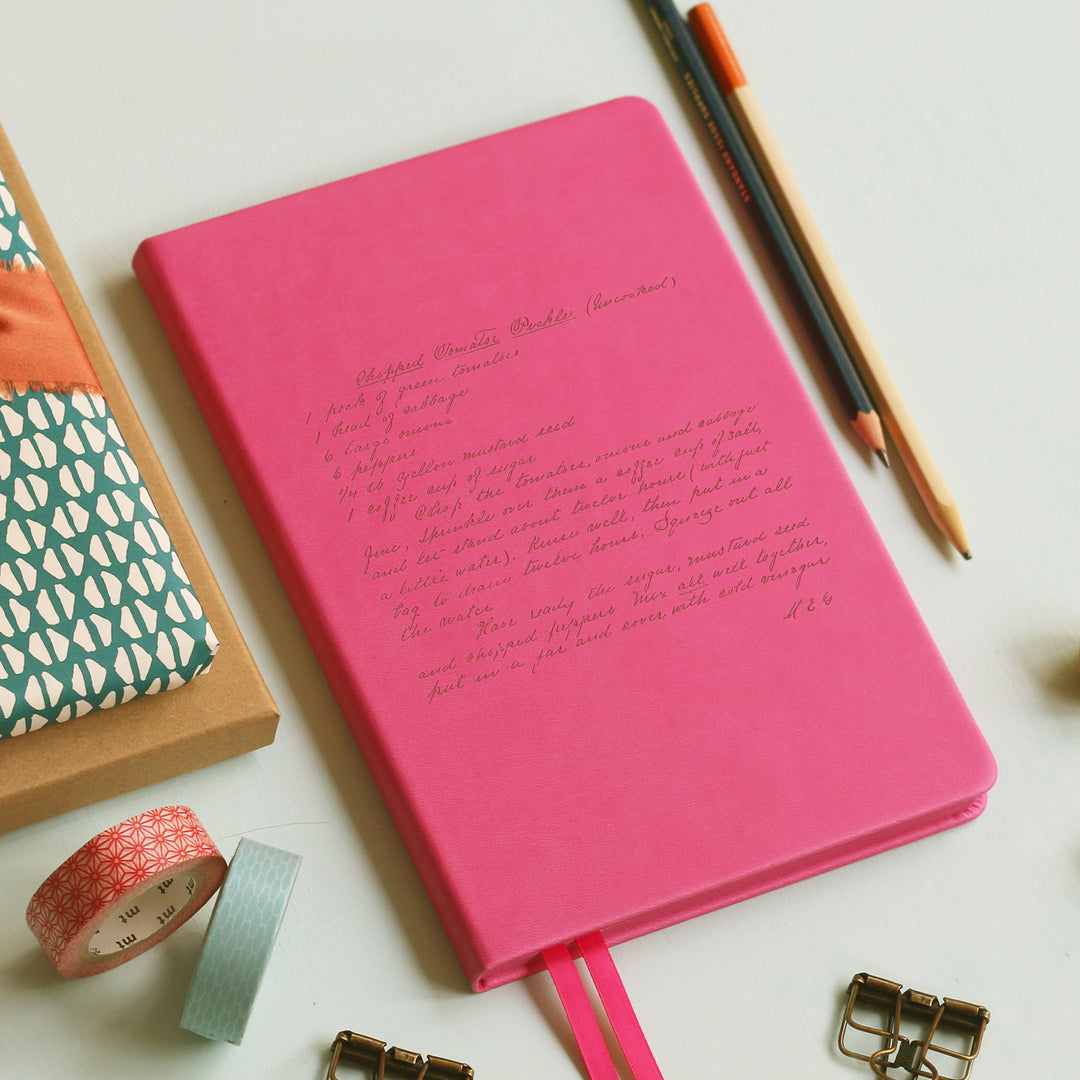 Chopped Tomatoe Pickle (Uncooked)
1 peck of green tomatoes
1 head of cabbage
6 large onions
6 peppers
1/4 lb. Yellow mustard seed
1 coffee cup of sugar
Chop the tomatoes, onions and cabbage
fine, Sprinkle over them a coffee cup of salt,
and let stand about twelve hours (with just
a little water). Rinse well, then put in a
bag to drain twelve hours. Squeeze out all
the water
Have ready the sugar, mustard seed
and chopped peppers Mix all well together,
put in a jar and cover with cold vinegar
M E G
STANDARD ISSUE SUPPLIES
mt
mt
mt
mt